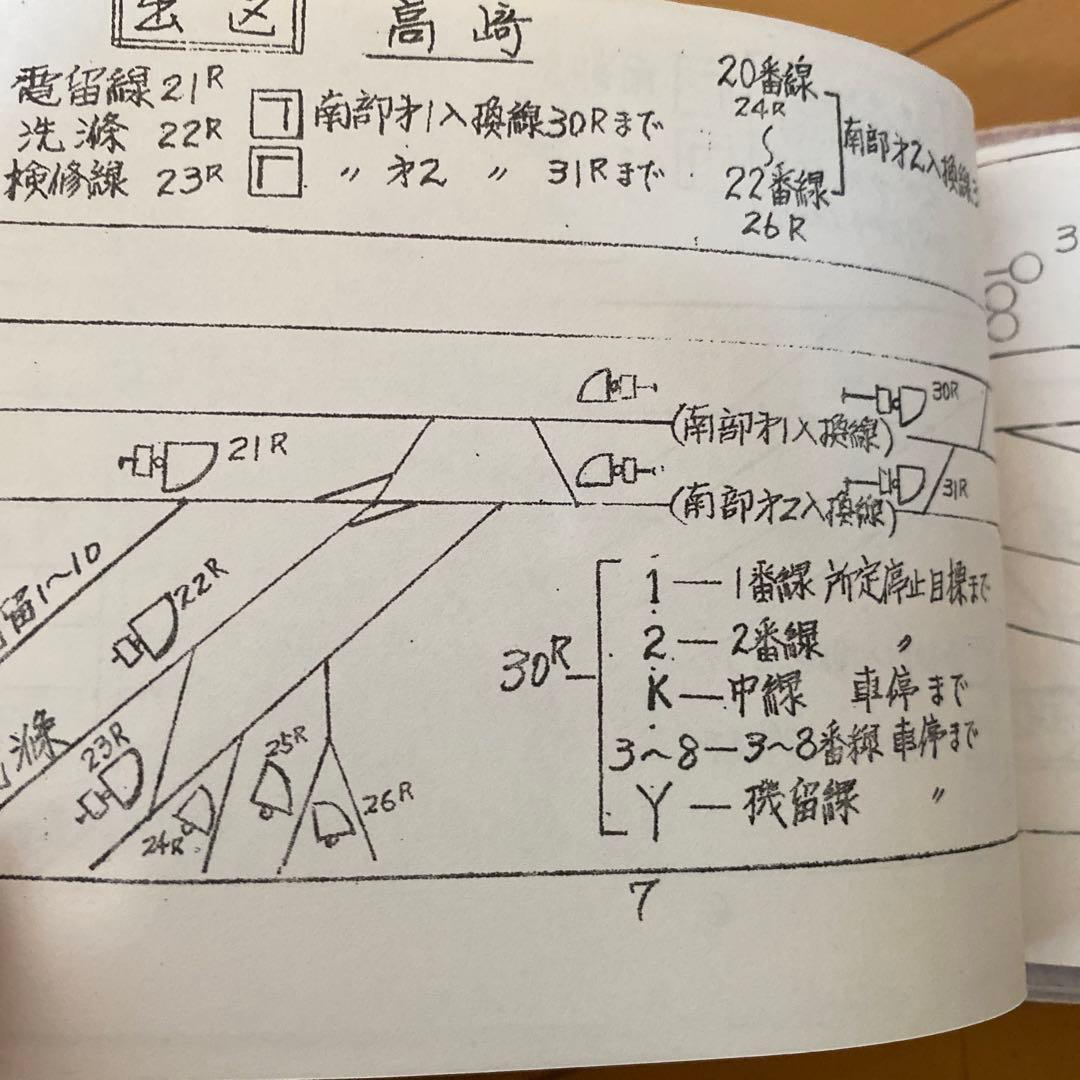 出区 高崎
電留線 21R
洗滌 22R
検修線 23R
南部才1入換線30Rまで
〃 才2 〃 31Rまで
20番線
24R
〜
22番線
26R
南部才2入換線ま
3
30R
(南部才1入換線)
21R
31R
(南部才2入換線)
留1〜10
22R
滌
23R
24R
25R
26R
30R
1 — 1番線 所定停止目標まで
2 — 2番線 〃
K — 中線 車停まで
3〜8 — 3〜8番線 車停まで
Y — 機留線 〃
7